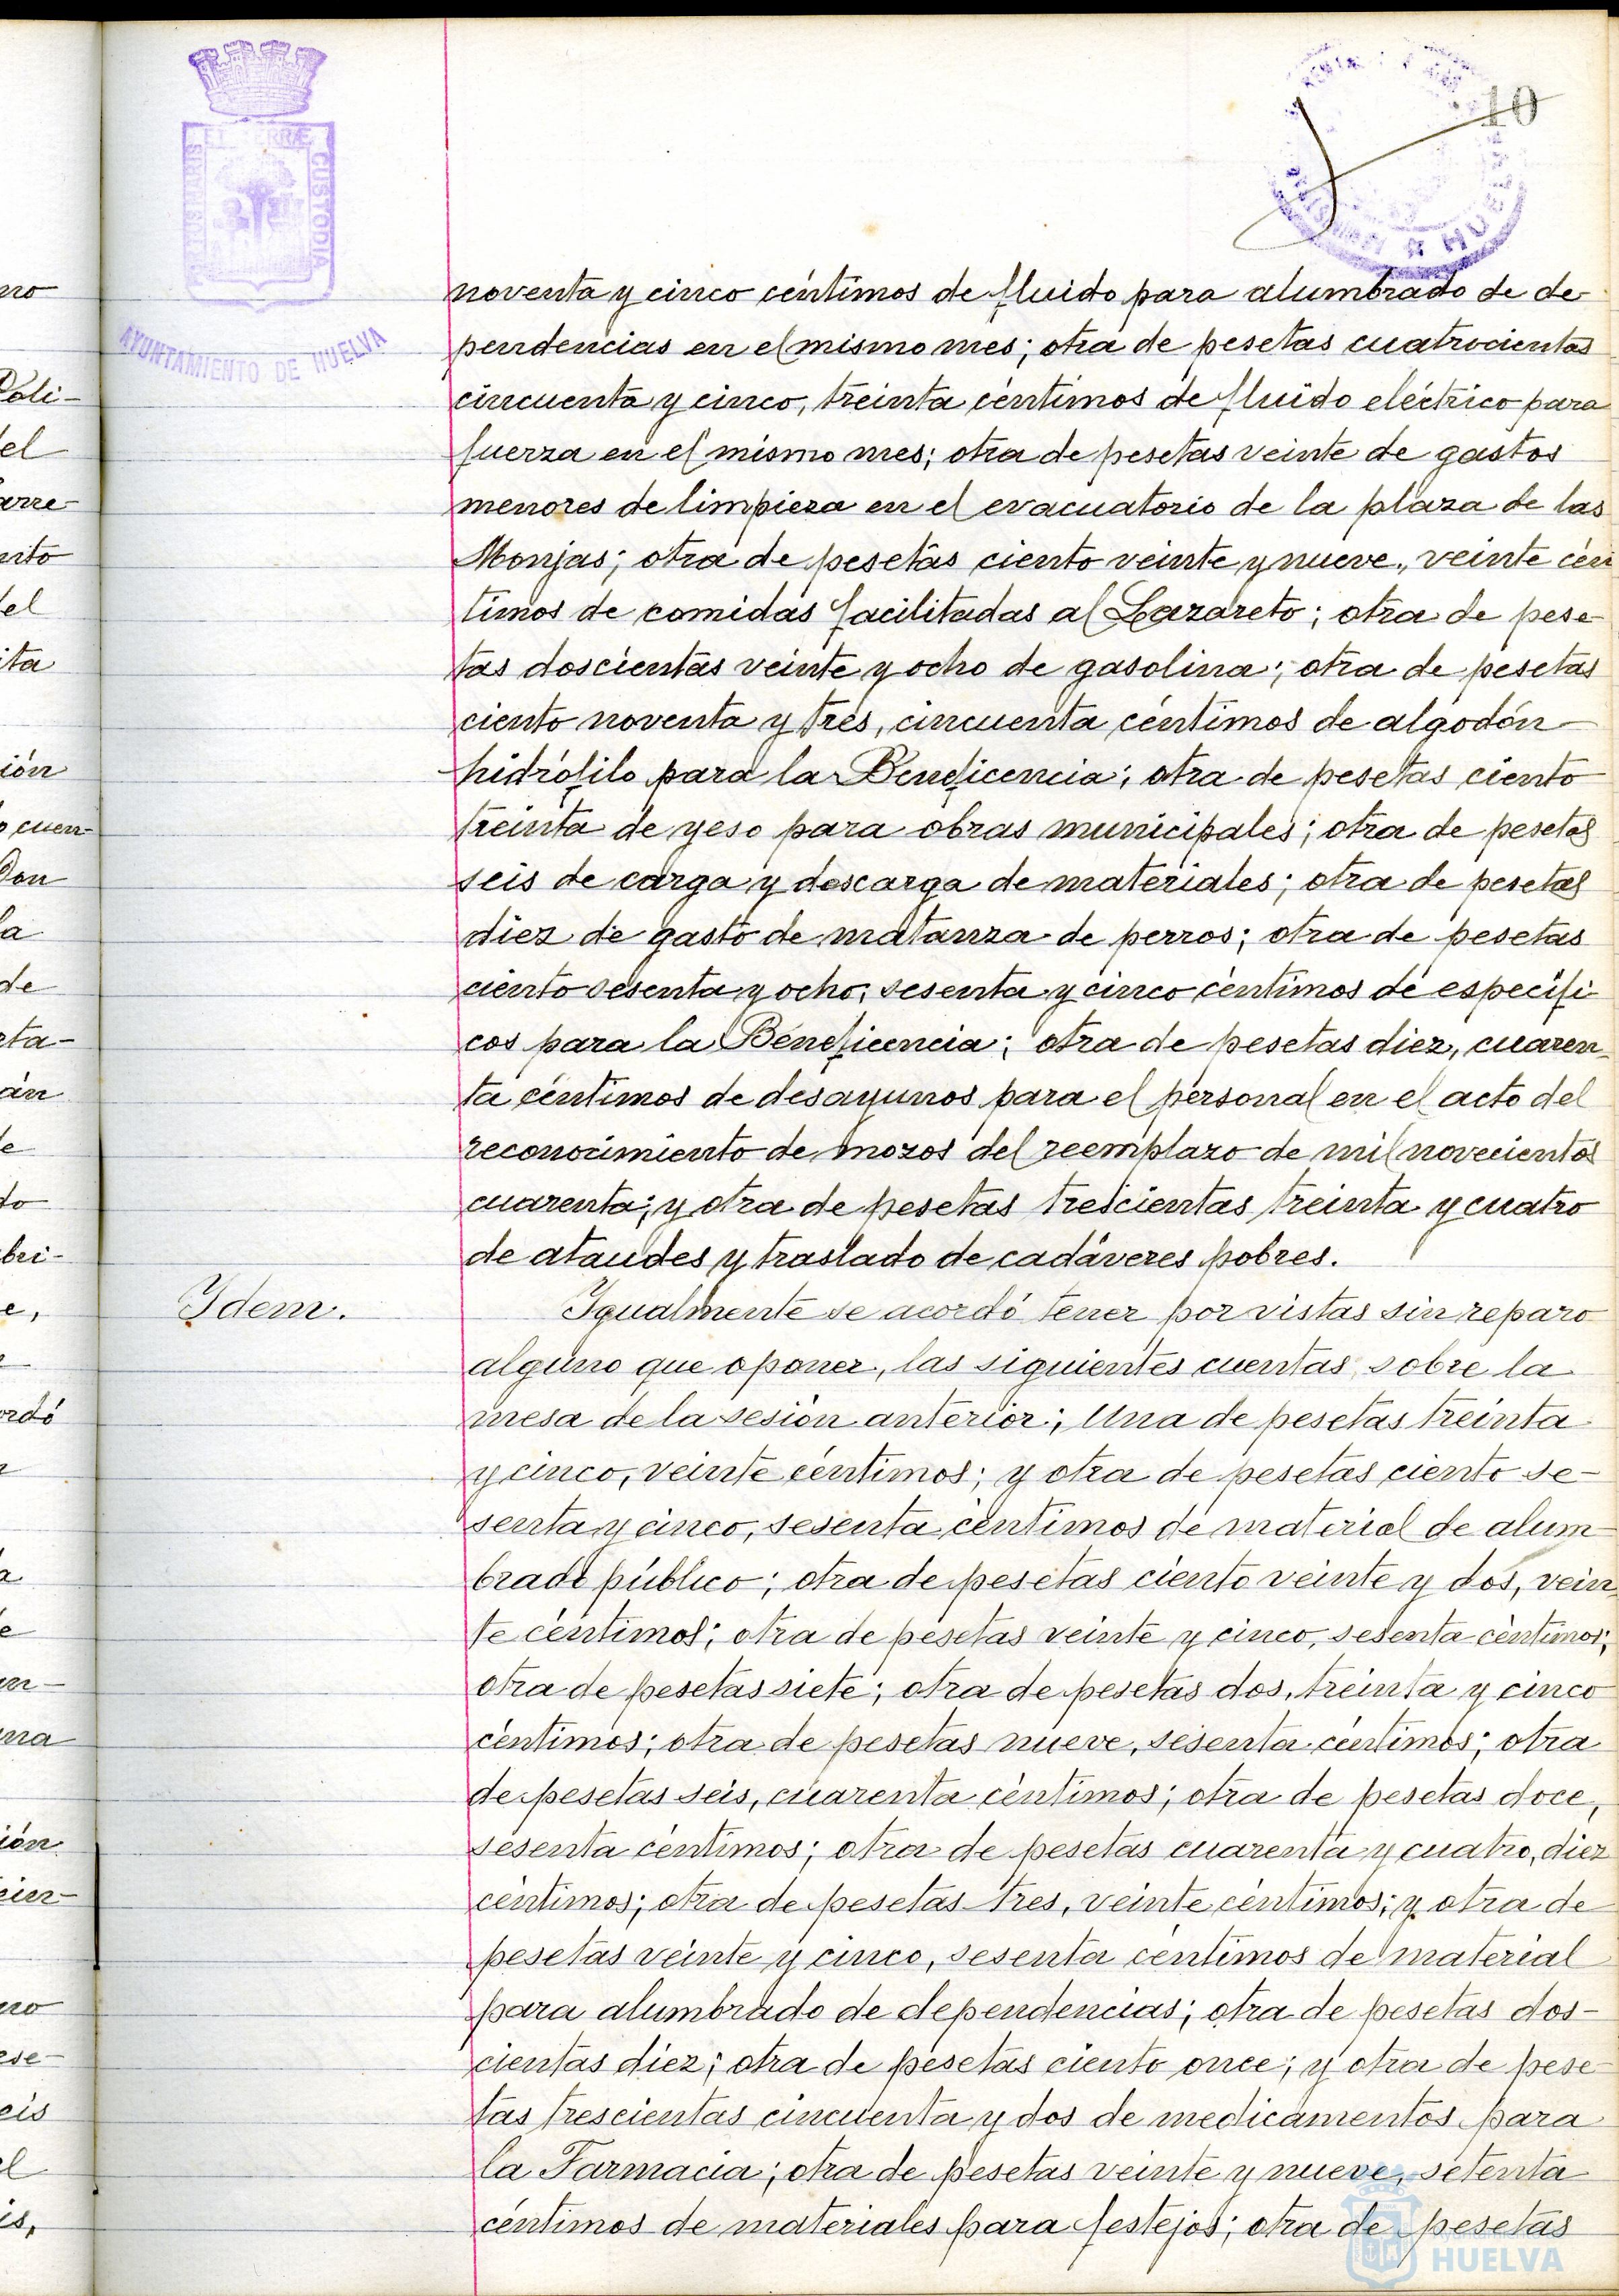 10
PORTUS MARIS ET TERRÆ CUSTODIA
AYUNTAMIENTO DE HUELVA
noventa y cinco céntimos de fluido para alumbrado de de-
pendencias en el mismo mes; otra de pesetas cuatrocientas
cincuenta y cinco, treinta céntimos de fluido eléctrico para
fuerza en el mismo mes; otra de pesetas veinte de gastos
menores de limpieza en el evacuatorio de la plaza de las
Monjas; otra de pesetas ciento veinte y nueve, veinte cén
timos de comidas facilitadas al Lazareto; otra de pese-
tas doscientas veinte y ocho de gasolina; otra de pesetas
ciento noventa y tres, cincuenta céntimos de algodón
hidrófilo para la Beneficencia; otra de pesetas ciento
treinta de yeso para obras municipales; otra de pesetas
seis de carga y descarga de materiales; otra de pesetas
diez de gasto de matanza de perros; otra de pesetas
ciento sesenta y ocho, sesenta y cinco céntimos de específi
cos para la Beneficencia; otra de pesetas diez, cuaren-
ta céntimos de desayunos para el personal en el acto del
reconocimiento de mozos del reemplazo de mil novecientos
cuarenta; y otra de pesetas trescientas treinta y cuatro
de ataudes y traslado de cadáveres pobres.
Idem.
Igualmente se acordó tener por vistas sin reparo
alguno que oponer, las siguientes cuentas sobre la
mesa de la sesión anterior; Una de pesetas treinta
y cinco, veinte céntimos; y otra de pesetas ciento se-
senta y cinco, sesenta céntimos de material de alum-
brado público; otra de pesetas ciento veinte y dos, vein-
te céntimos; otra de pesetas veinte y cinco, sesenta céntimos;
otra de pesetas siete; otra de pesetas dos, treinta y cinco
céntimos; otra de pesetas nueve, sesenta céntimos; otra
de pesetas seis, cuarenta céntimos; otra de pesetas doce,
sesenta céntimos; otra de pesetas cuarenta y cuatro, diez
céntimos; otra de pesetas tres, veinte céntimos; y otra de
pesetas veinte y cinco, sesenta céntimos de material
para alumbrado de dependencias; otra de pesetas dos-
cientas diez; otra de pesetas ciento once; y otra de pese-
tas trescientas cincuenta y dos de medicamentos para
la Farmacia; otra de pesetas veinte y nueve, setenta
céntimos de materiales para festejos; otra de pesetas
HUELVA